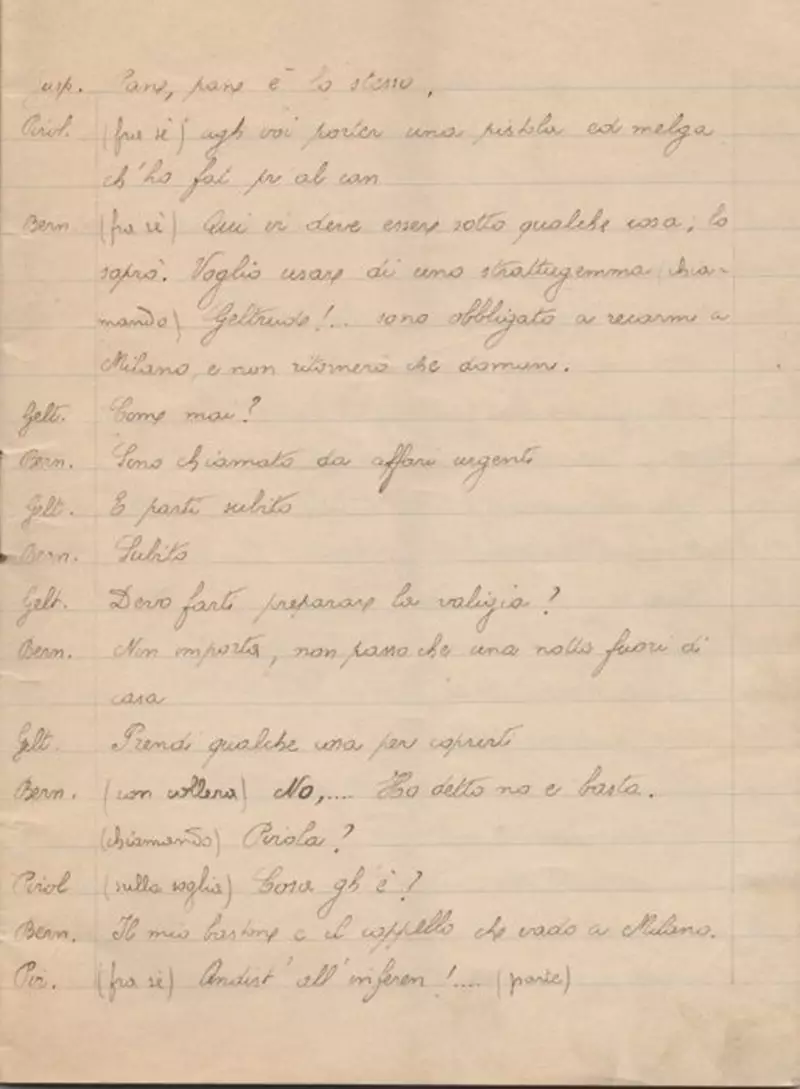 Gusp. Pane, pane è lo stesso.
Pirol. (fra sè) agh voi porter una pistola ed melga
ch'ho fai pr al can
Bern (fra sè) Qui vi deve essere sotto qualche cosa, lo
saprò. Voglio usare di uno strattugemma (chia-
mando) Geltrude!.. sono obbligato a recarmi a
Milano, e non ritornerò che domani.
Gelt. Come mai?
Bern. Sono chiamato da affari urgenti
Gelt. E parti subito
Bern. Subito
Gelt. Devo farti preparare la valigia?
Bern. Non importa, non passo che una notte fuori di
casa
Gelt. Prendi qualche cosa per coprirti
Bern. (con collera) No,.... Ho detto no e basta.
(chiamando) Pirola?
Pirol (sulla soglia) Cosa gh'è?
Bern. Il mio bastone e il cappello che vado a Milano.
Pir. (fra sè) Andist' all'inferen!.... (parte)